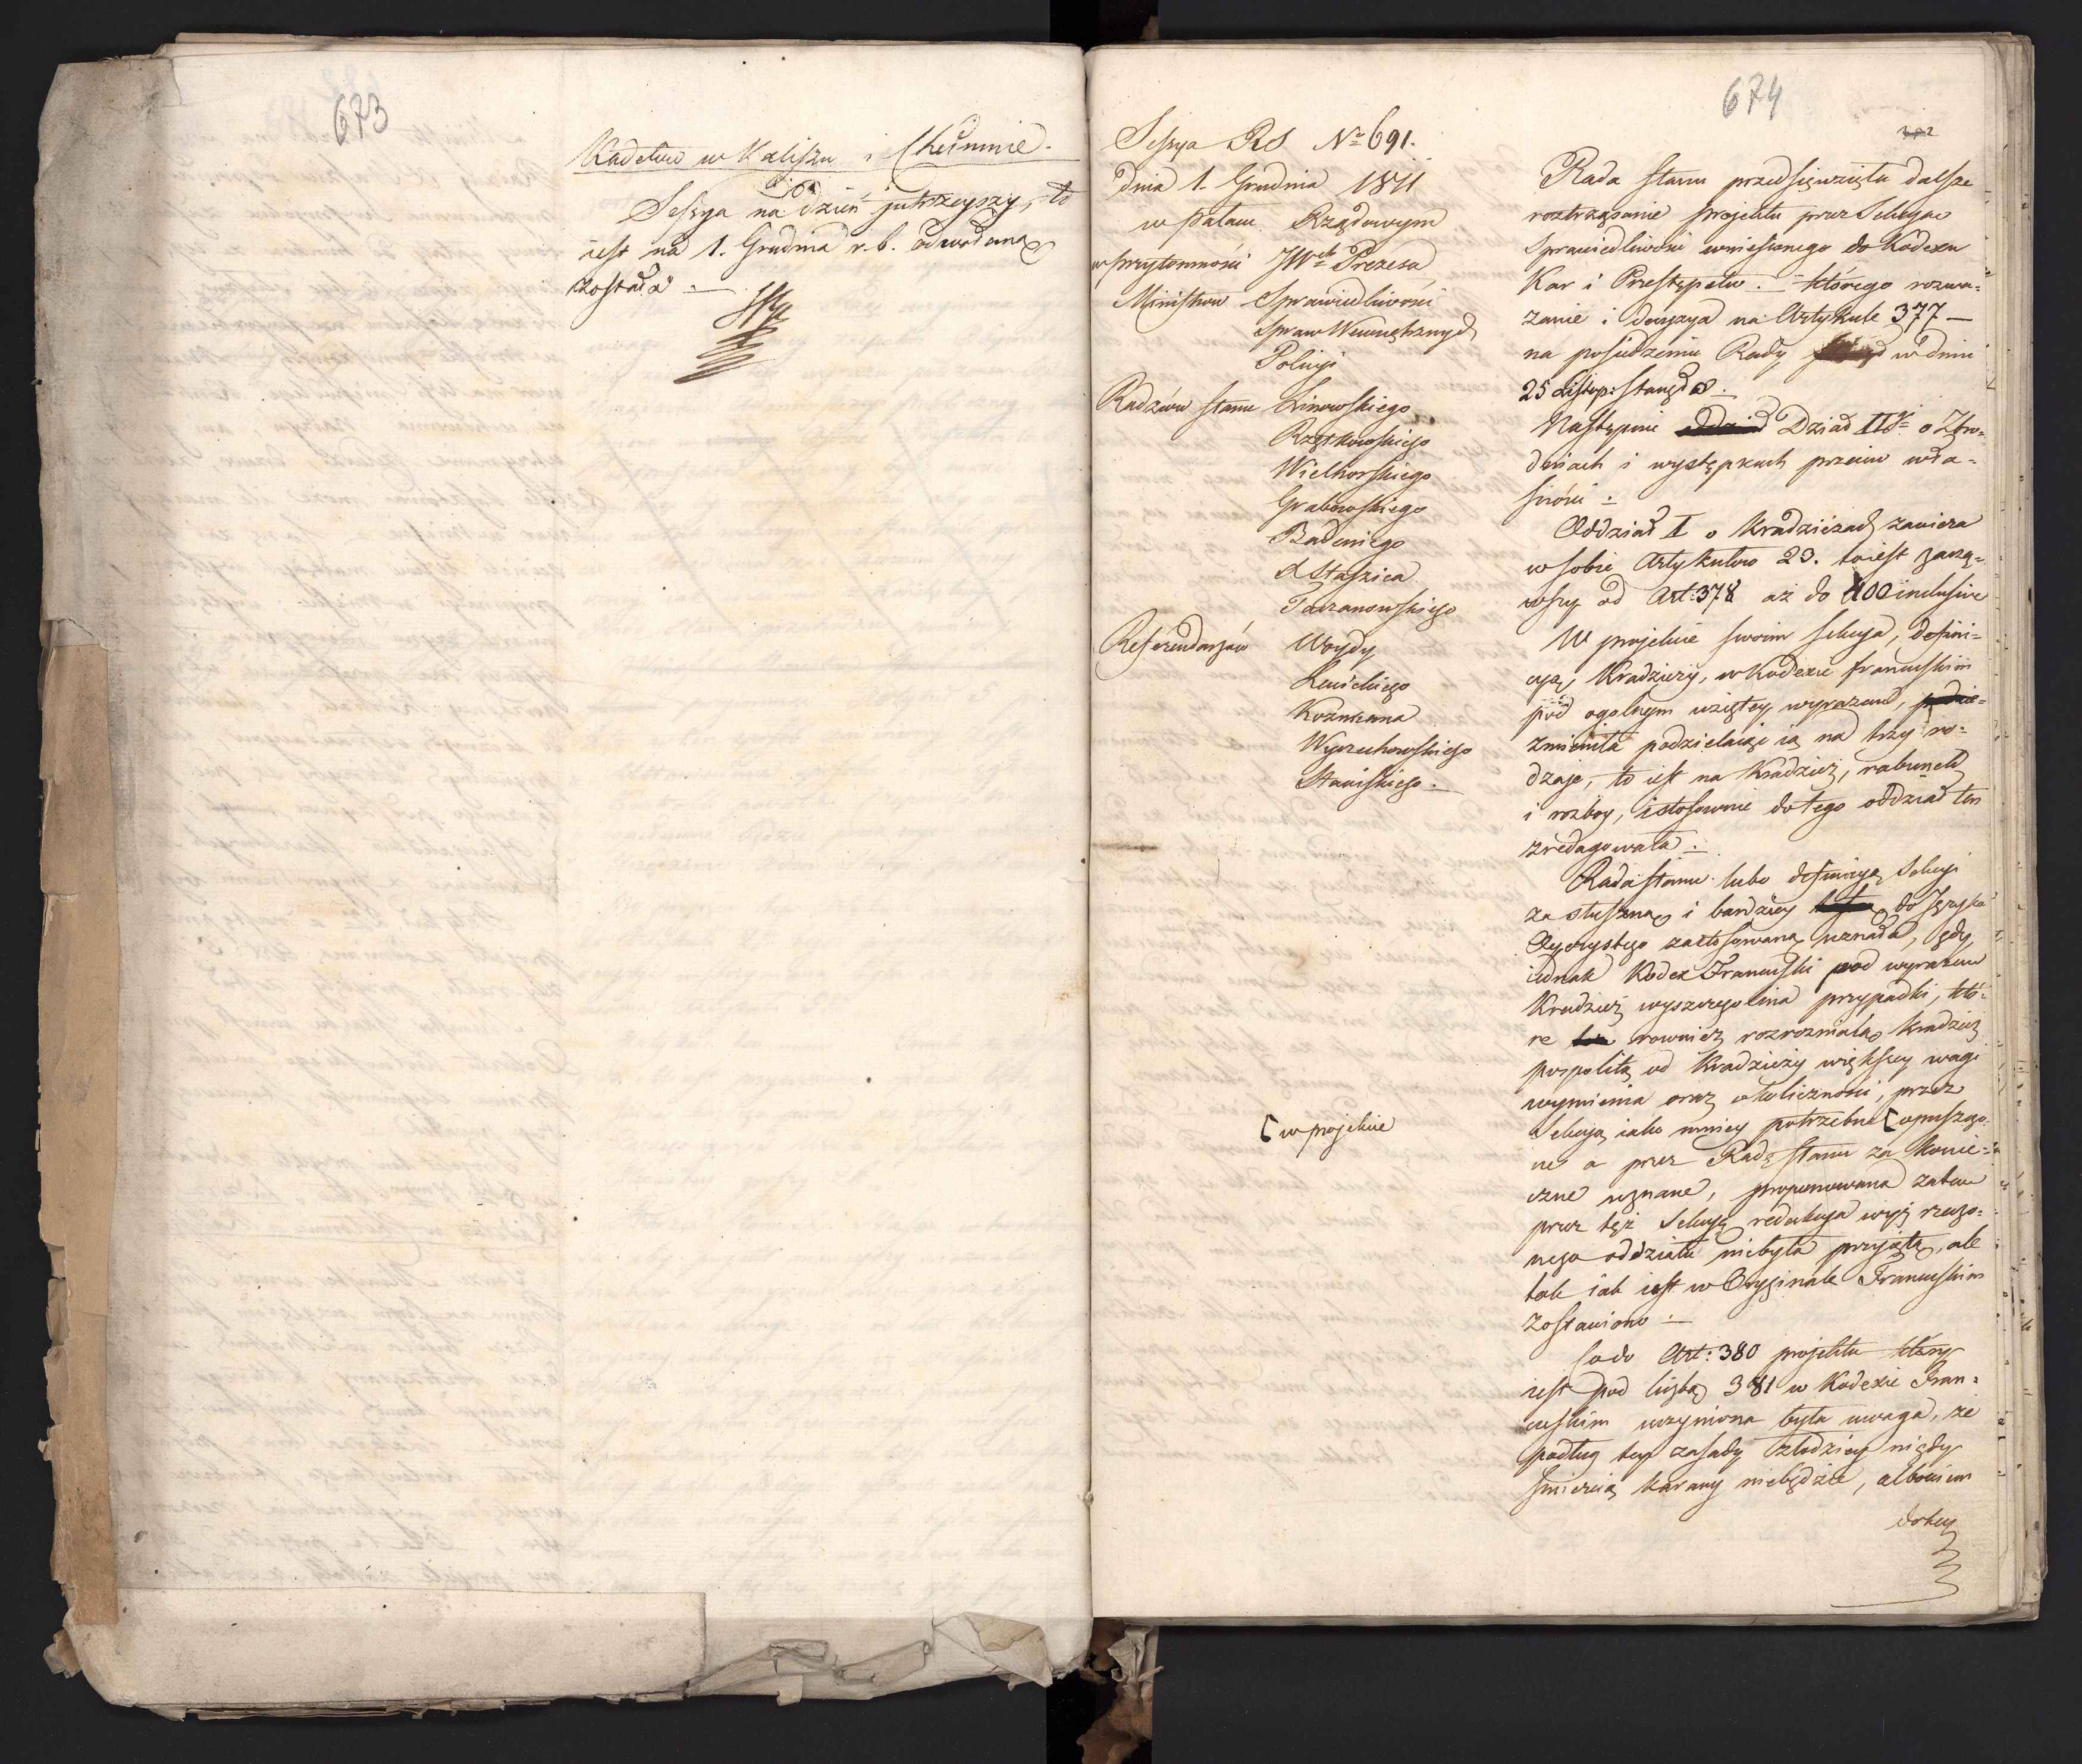 673
Kadetów w Kaliszu i Chełmnie.
Sessya na dzień jutrzeyszy, to
iest na 1. Grudnia r. b. odwołaną
została —
674
Sessya RS Nro 691.
dnia 1. Grudnia 1811
w pałacu Rządowym
w przytomności JWch Prezesa
Ministrów Sprawiedliwości
Spraw Wewnętrznych
Policyi
Radzców stanu Linowskiego
Rzętkowskiego
Wielhorskiego
Grabowskiego
Badeniego
X Staszica
Tarzanowskiego
Referendarzów Woydy
Lewickiego
Kozmiana
Wyczechowskiego
Stawiskiego —
[ w projekcie
Rada stanu przedsięwzięła dalsze
roztrząsanie projektu przez Sekcyą
Sprawiedliwości wniesionego do Kodexu
Kar i Przestępstw. — którego rozwa-
żanie i decyzya na Artykule 377 —
na posiedzeniu Rady w dniu
25 Listop: stanęła —
Następnie Dział II o Zbro-
dniach i występkach przeciw wła-
sności —
Oddział I o Kradzieżach zawiera
w sobie Artykułów 23. to iest zaczą-
wszy od Art: 378 aż do 400 inclusive
W projekcie swoim Sekcya, defini-
cyą Kradzieży, w Kodexie francuskim
pod ogolnym wziętey wyrazem,
zmieniła podzielaiąc ią na trzy ro-
dzaje, to iest na Kradzież, rabunek
i rozboy, i stosownie do tego oddział ten
zredagowała —
Rada stanu lubo definicyą Sekcyi
za słuszną i bardziey do Języka
Oyczystego zastosowaną uznała, gdy
iednak Kodex Francuski pod wyrazem
Kradzież wyszczegolnia przypadki, któ-
re rownież rozrozniaią kradzież
pospolitą od Kradzieży większey wagi
wymienia oraz okoliczności, przez
Sekcyą iako mniey potrzebne [ opuszczo-
ne a przez Radę stanu za konie-
czne uznane, proponowana zatem
przez tęż Sekcyę redakcya wyż rzeczo-
nego oddziału niebyła przyiętą, ale
tak iak iest w Oryginale Francuskim
zostawiono —
Co do Art: 380 projektu który
iest pod liczbą 381 w Kodexie Fran-
cuskim uczyniona była uwaga, że
podług tey zasady złodziey nigdy
śmiercią karany niebędzie, albowiem